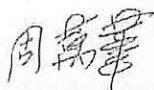 周萬華